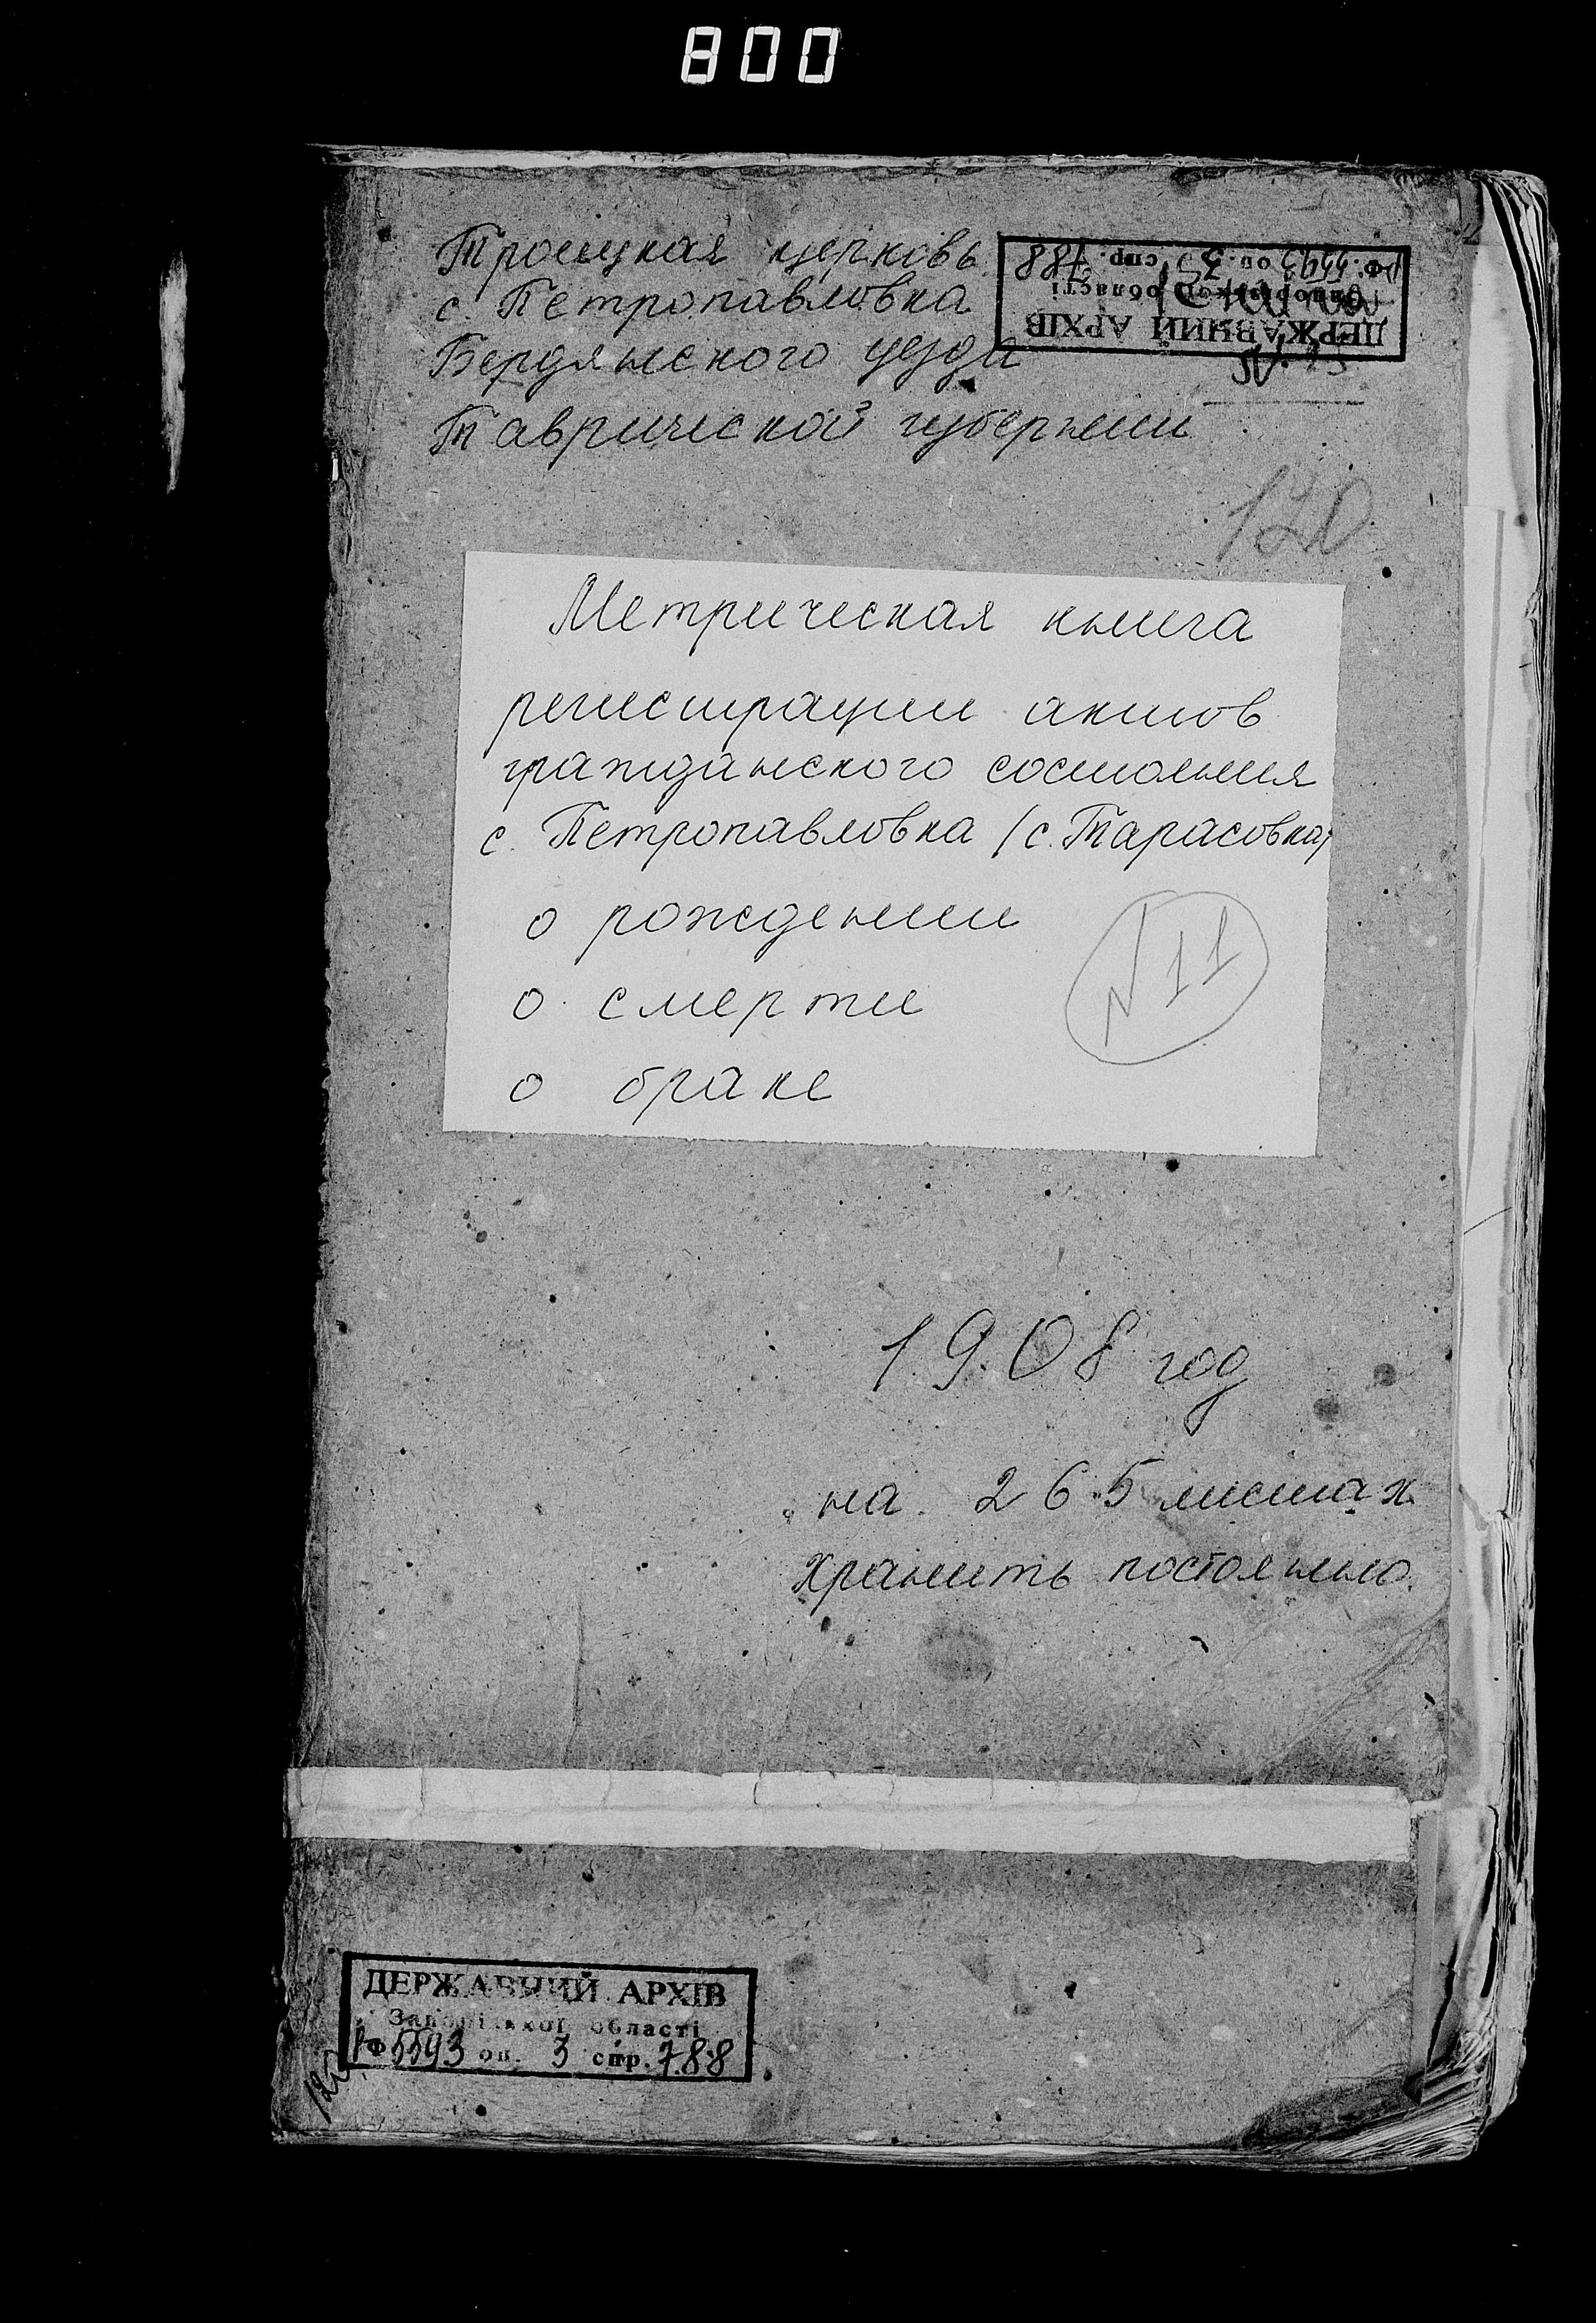 800
Троицкая церковь
с. Петропавловка
Бердянского уезда
Таврической губернии
ДЕРЖАВНИЙ АРХІВ
Запорізької області
Ф. 5593 оп. 3 спр. 788
120
Метрическая книга
регистрации актов
гражданского состояния
с. Петропавловка (с. Тарасовка)
о рождении
о смерти
о браке
N 11
1908 год
на 265 листах
хранить постоянно.
ДЕРЖАВНИЙ АРХІВ
Запорізької області
Ф 5593 оп. 3 спр. 788